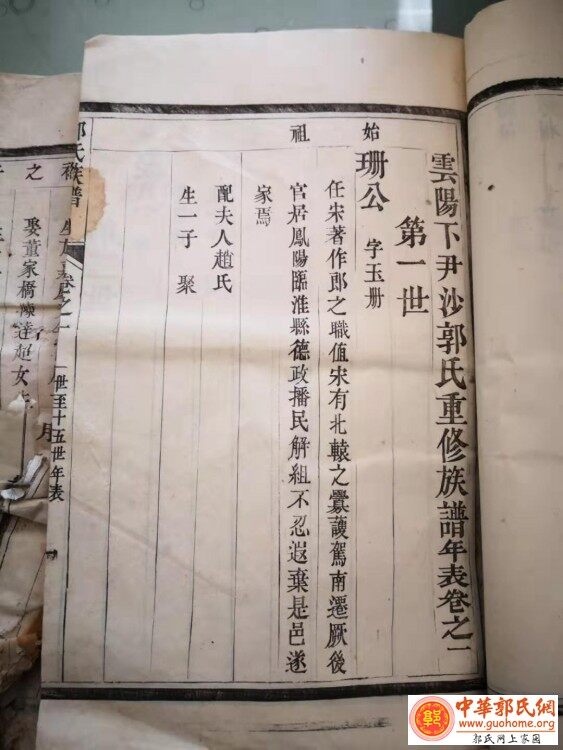 雲陽下尹沙郭氏重修族譜年表卷之一
第一世
始祖
珊公 字玉册
任宋著作郎之職值宋有北轅之釁護駕南遷厥後
官居鳳陽臨淮縣德政播民解組不忍遐棄是邑遂
家焉
配夫人趙氏
生一子 聚
氏族譜
卷之一
一世至十五世年表
之
娶董家橋陳達起女
中華郭氏網
www.guohome.org
郭氏网上家园